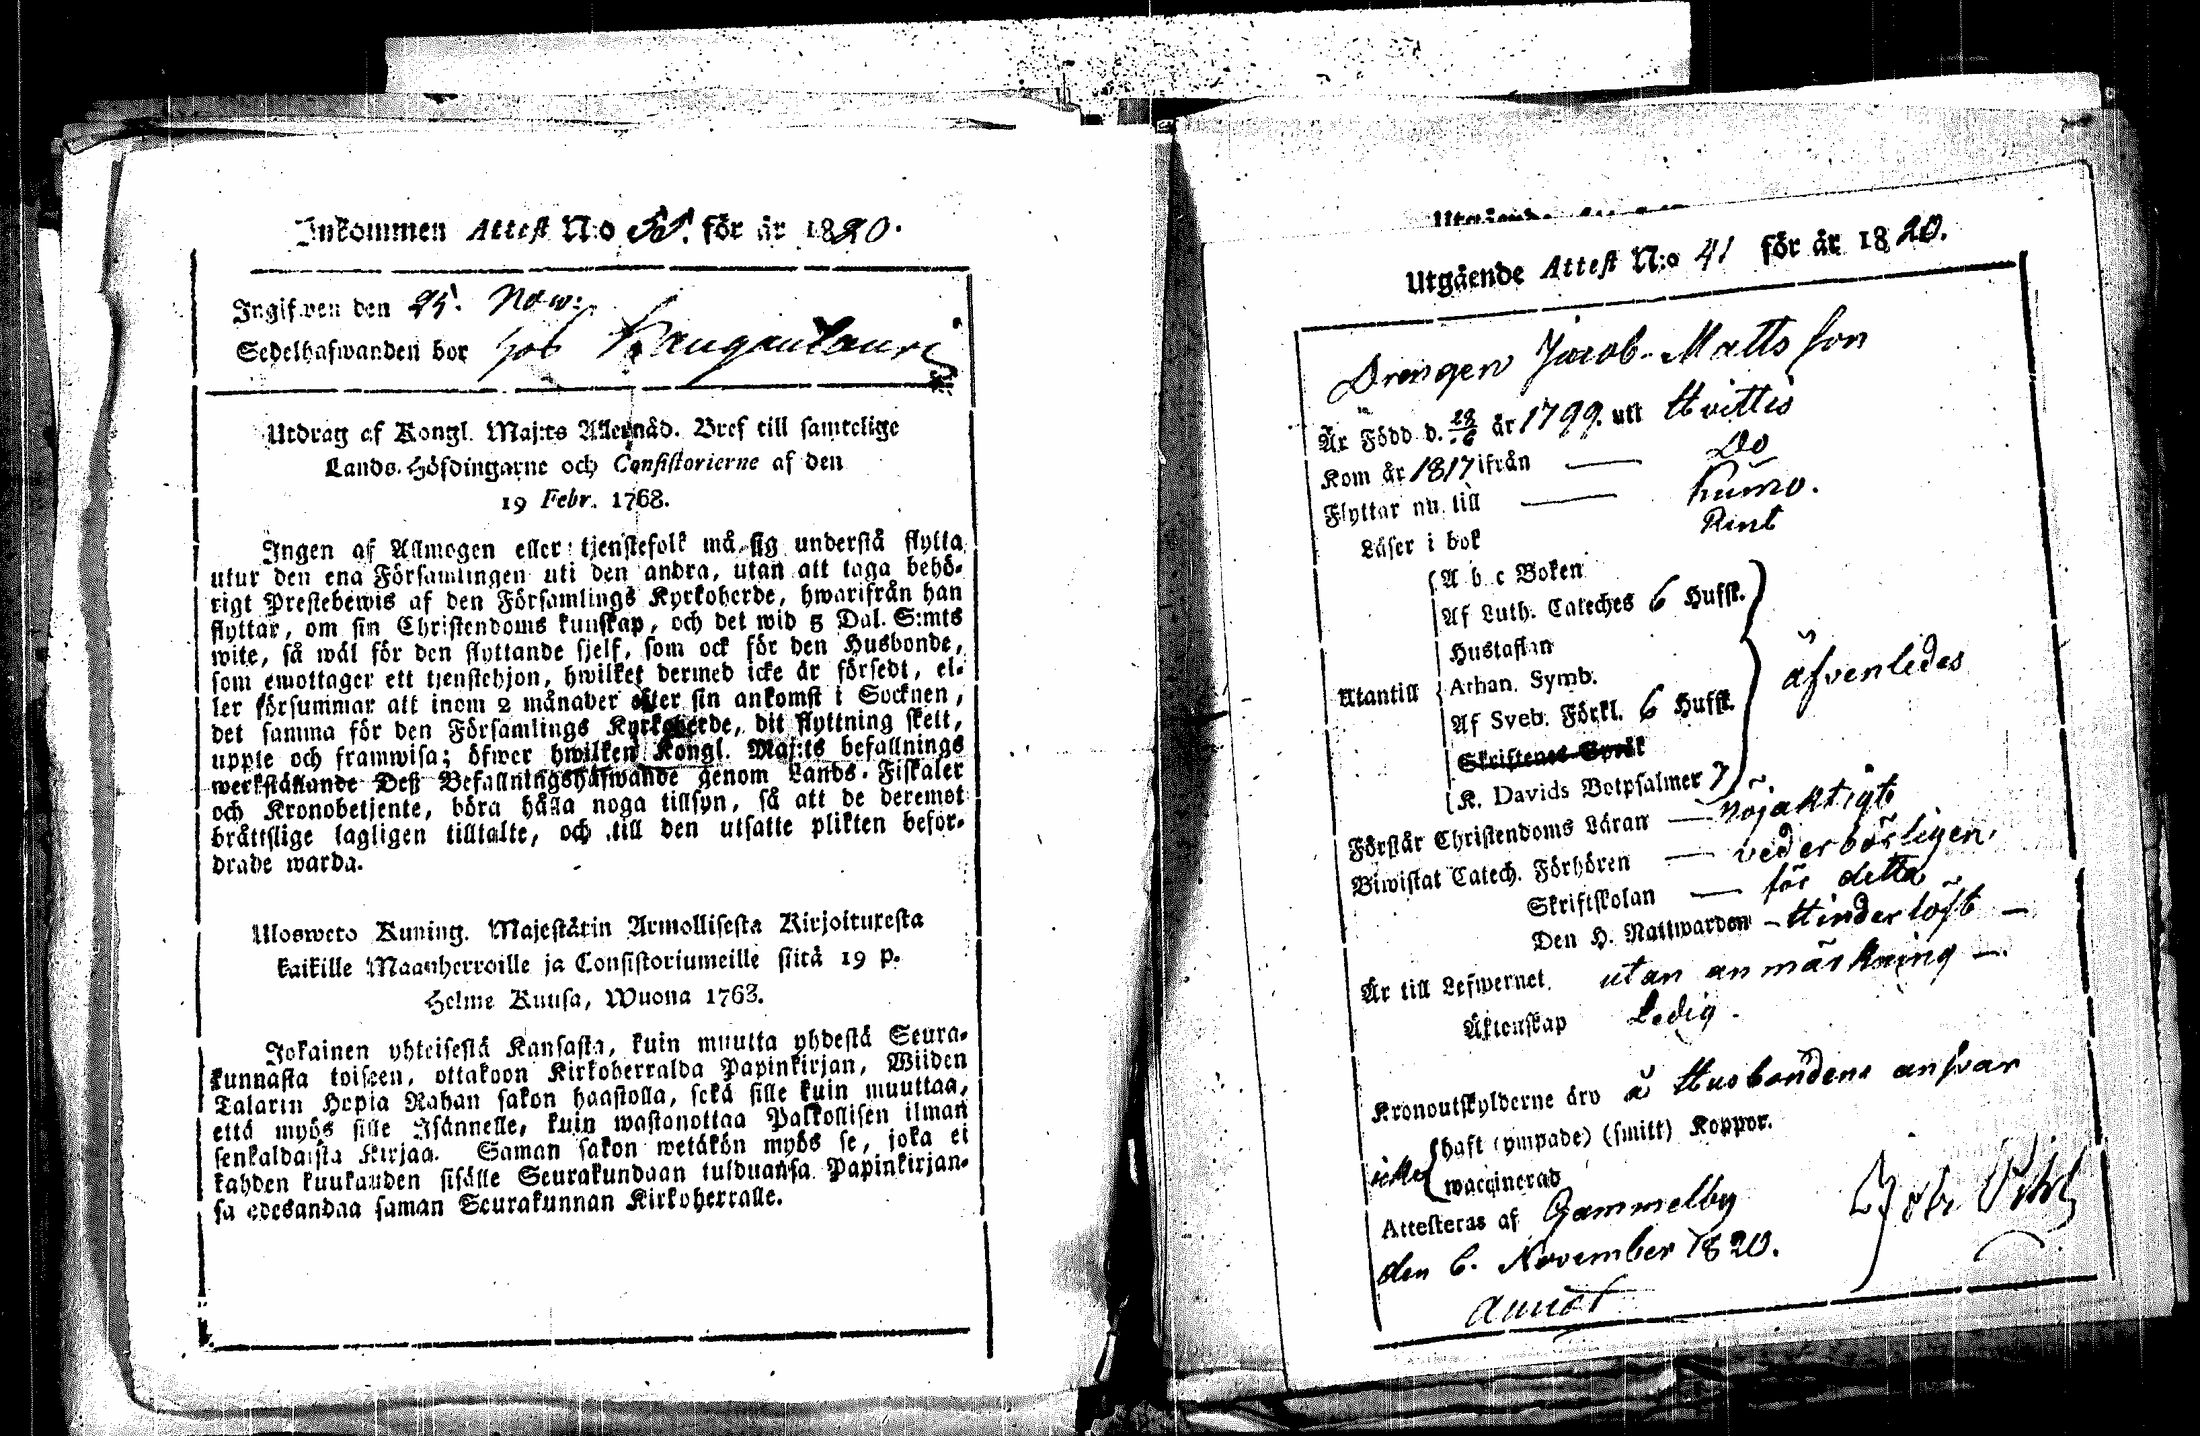 Inkommen Attest N:o 55. för år 1820.
Ingifwen den 25. Now:
Sedelhafwanden bor hos
Utdrag af Kongl. Maj:ts Allernåd. Bref till samtelige
Lands-Höfdingarne och Consistorierne af den
19 Febr. 1768.
Ingen af Allmogen eller tjenstefolk må sig understå flytta
utur den ena Församlingen uti den andra, utan att taga behö-
rigt Prestebewis af den Församlings Kyrkoherde, hwarifrån han
flyttar, om sin Christendoms kunskap, och det wid 5 Dal. S:mts
wite, så wäl för den flyttande sjelf, som ock för den Husbonde,
som emottager ett tjenstehjon, hwilket dermed icke är försedt, el-
ler försummar att inom 2 månader efter sin ankomst i Socknen,
det samma för den Församlings Kyrkoherde, dit flyttning skett,
uppte och framwisa; öfwer hwilken Kongl. Maj:ts befallnings
werkställande Deß Befallningshafwande genom Lands-Fiskaler
och Kronobetjente, böra hålla noga tillsyn, så att de deremot
bråttslige lagligen tilltalte, och till den utsatte plikten beför-
drade warda.
Ulosweto Kuning. Majestätin Armollisesta Kirjoituxesta
kaikille Maanherroille ja Consistoriumeille siitä 19 p.
Helme Kuusa, Wuona 1763.
Jokainen yhteisestä Kansasta, kuin muutta yhdestä Seura-
kunnasta toiseen, ottakoon Kirkoherralda Papinkirjan, Wiiden
Talarin Hopia Rahan sakon haastolla, sekä sille kuin muuttaa,
että myös sille Isännelle, kuin wastanottaa Palkollisen ilman
senkaldaista Kirjaa. Saman sakon wetäkön myös se, joka ei
kahden kuukauden sisälle Seurakundaan tulduansa Papinkirjan-
sa edesandaa saman Seurakunnan Kirkoherralle.
Utgående Attest N:o 41 för år 1820.
Drengen Jacob Matts son
Är Född d. 29/6 år 1799. utt Hvittis
Kom år 1817 ifrån — Do
Flyttar nu till — Kumo.
Läser i bok Rent
A b c Boken
Af Luth. Cateches 6 Hufst.
Hustaflan
Utantill Athan. Symb. äfvenledes
Af Sveb. Förkl. 6 Hufst.
Skriftenes Språk
K. Davids Botpsalmer 7
Förstår Christendoms Läran — nöjaktigt
Biwistat Catech. Förhören — vederbörligen
Skriftskolan — för detta
Den H. Nattwarden — Hinderlöst —
Är till Lefwernet utan anmärkning —.
Äktenskap Ledig.
Kronoutskylderne äro å Husbondens answar
haft (ympade) (smitt) Koppor.
icke waccinerad
Attesteras af Gammelby
den 6. November 1820.